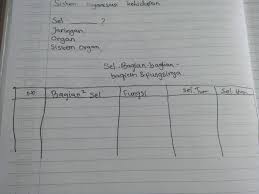 Sistem organisasi kehidupan
Sel ?
Jaringan
Organ
Sistem Organ
Sel Bagian-bagian-
bagian & fungsinya
No Bagian² Sel Fungsi Sel Sel